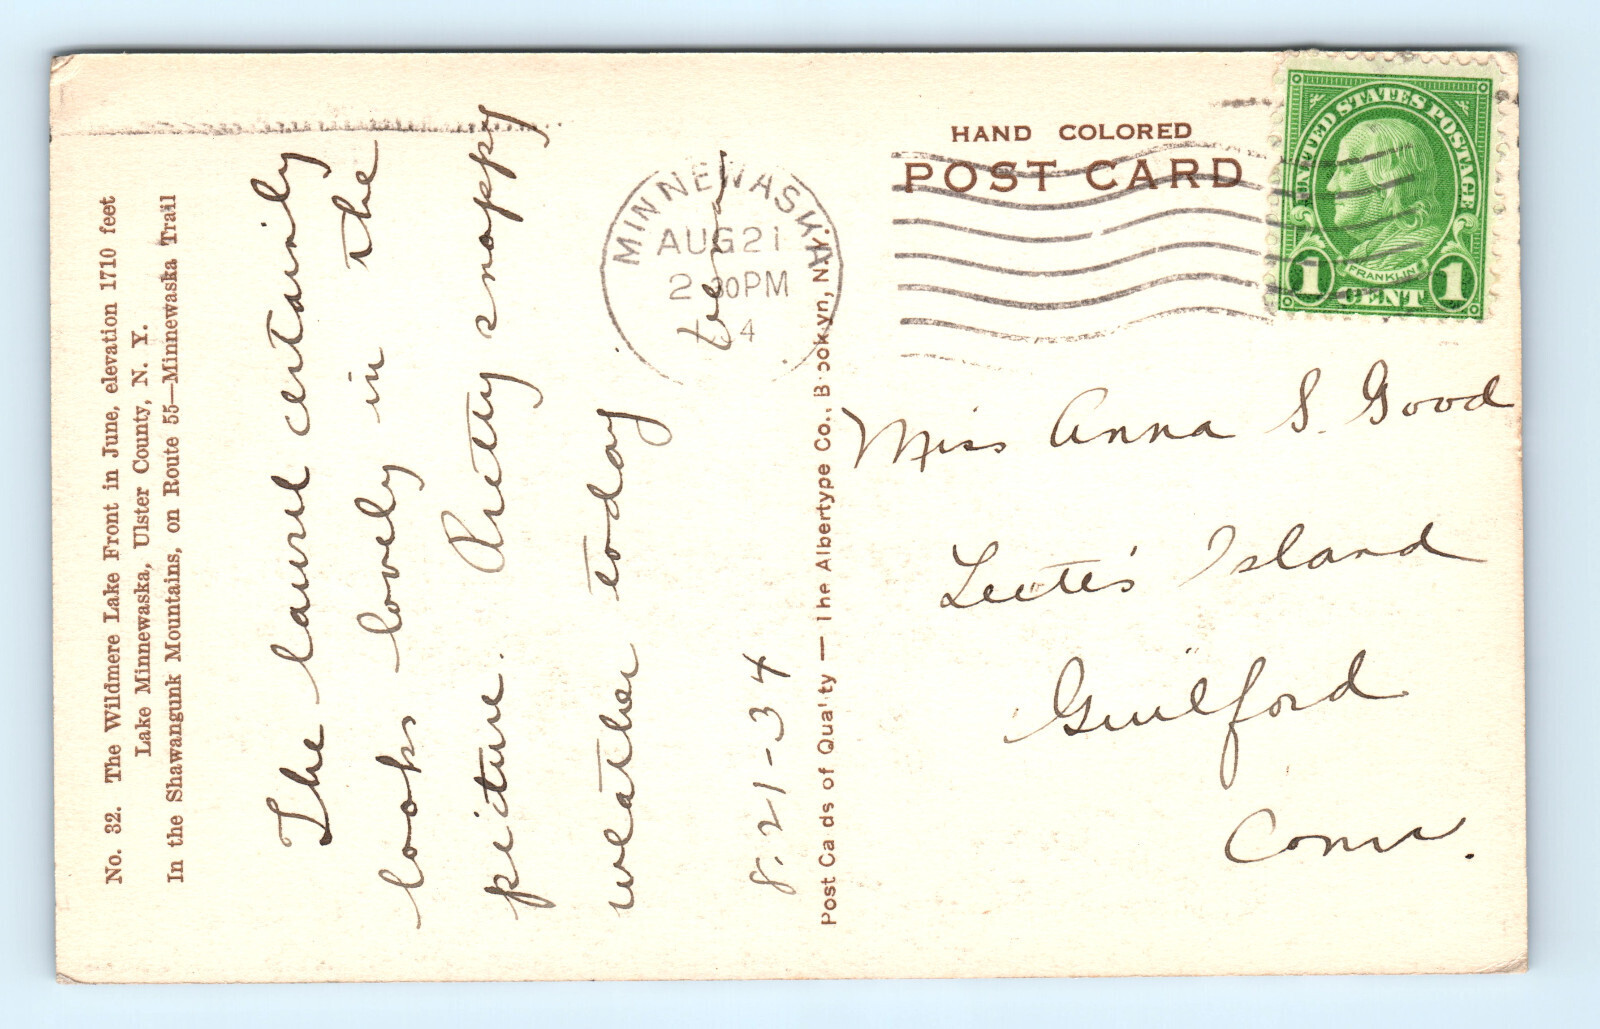 No. 32. The Wildmere Lake Front in June, elevation 1710 feet
Lake Minnewaska, Ulster County, N. Y.
In the Shawangunk Mountains, on Route 55—Minnewaska Trail
The laurel certainly
looks lovely in the
picture. Pretty snappy
weather today
8.21-34
MINNEWASKA
AUG 21
2 30PM
4
Post Cards of Quality — The Albertype Co., Brooklyn, N.Y.
HAND COLORED
POST CARD
UNITED STATES POSTAGE
FRANKLIN
1 CENT 1
Miss Anna S. Good
Leete's Island
Guilford
Conn.